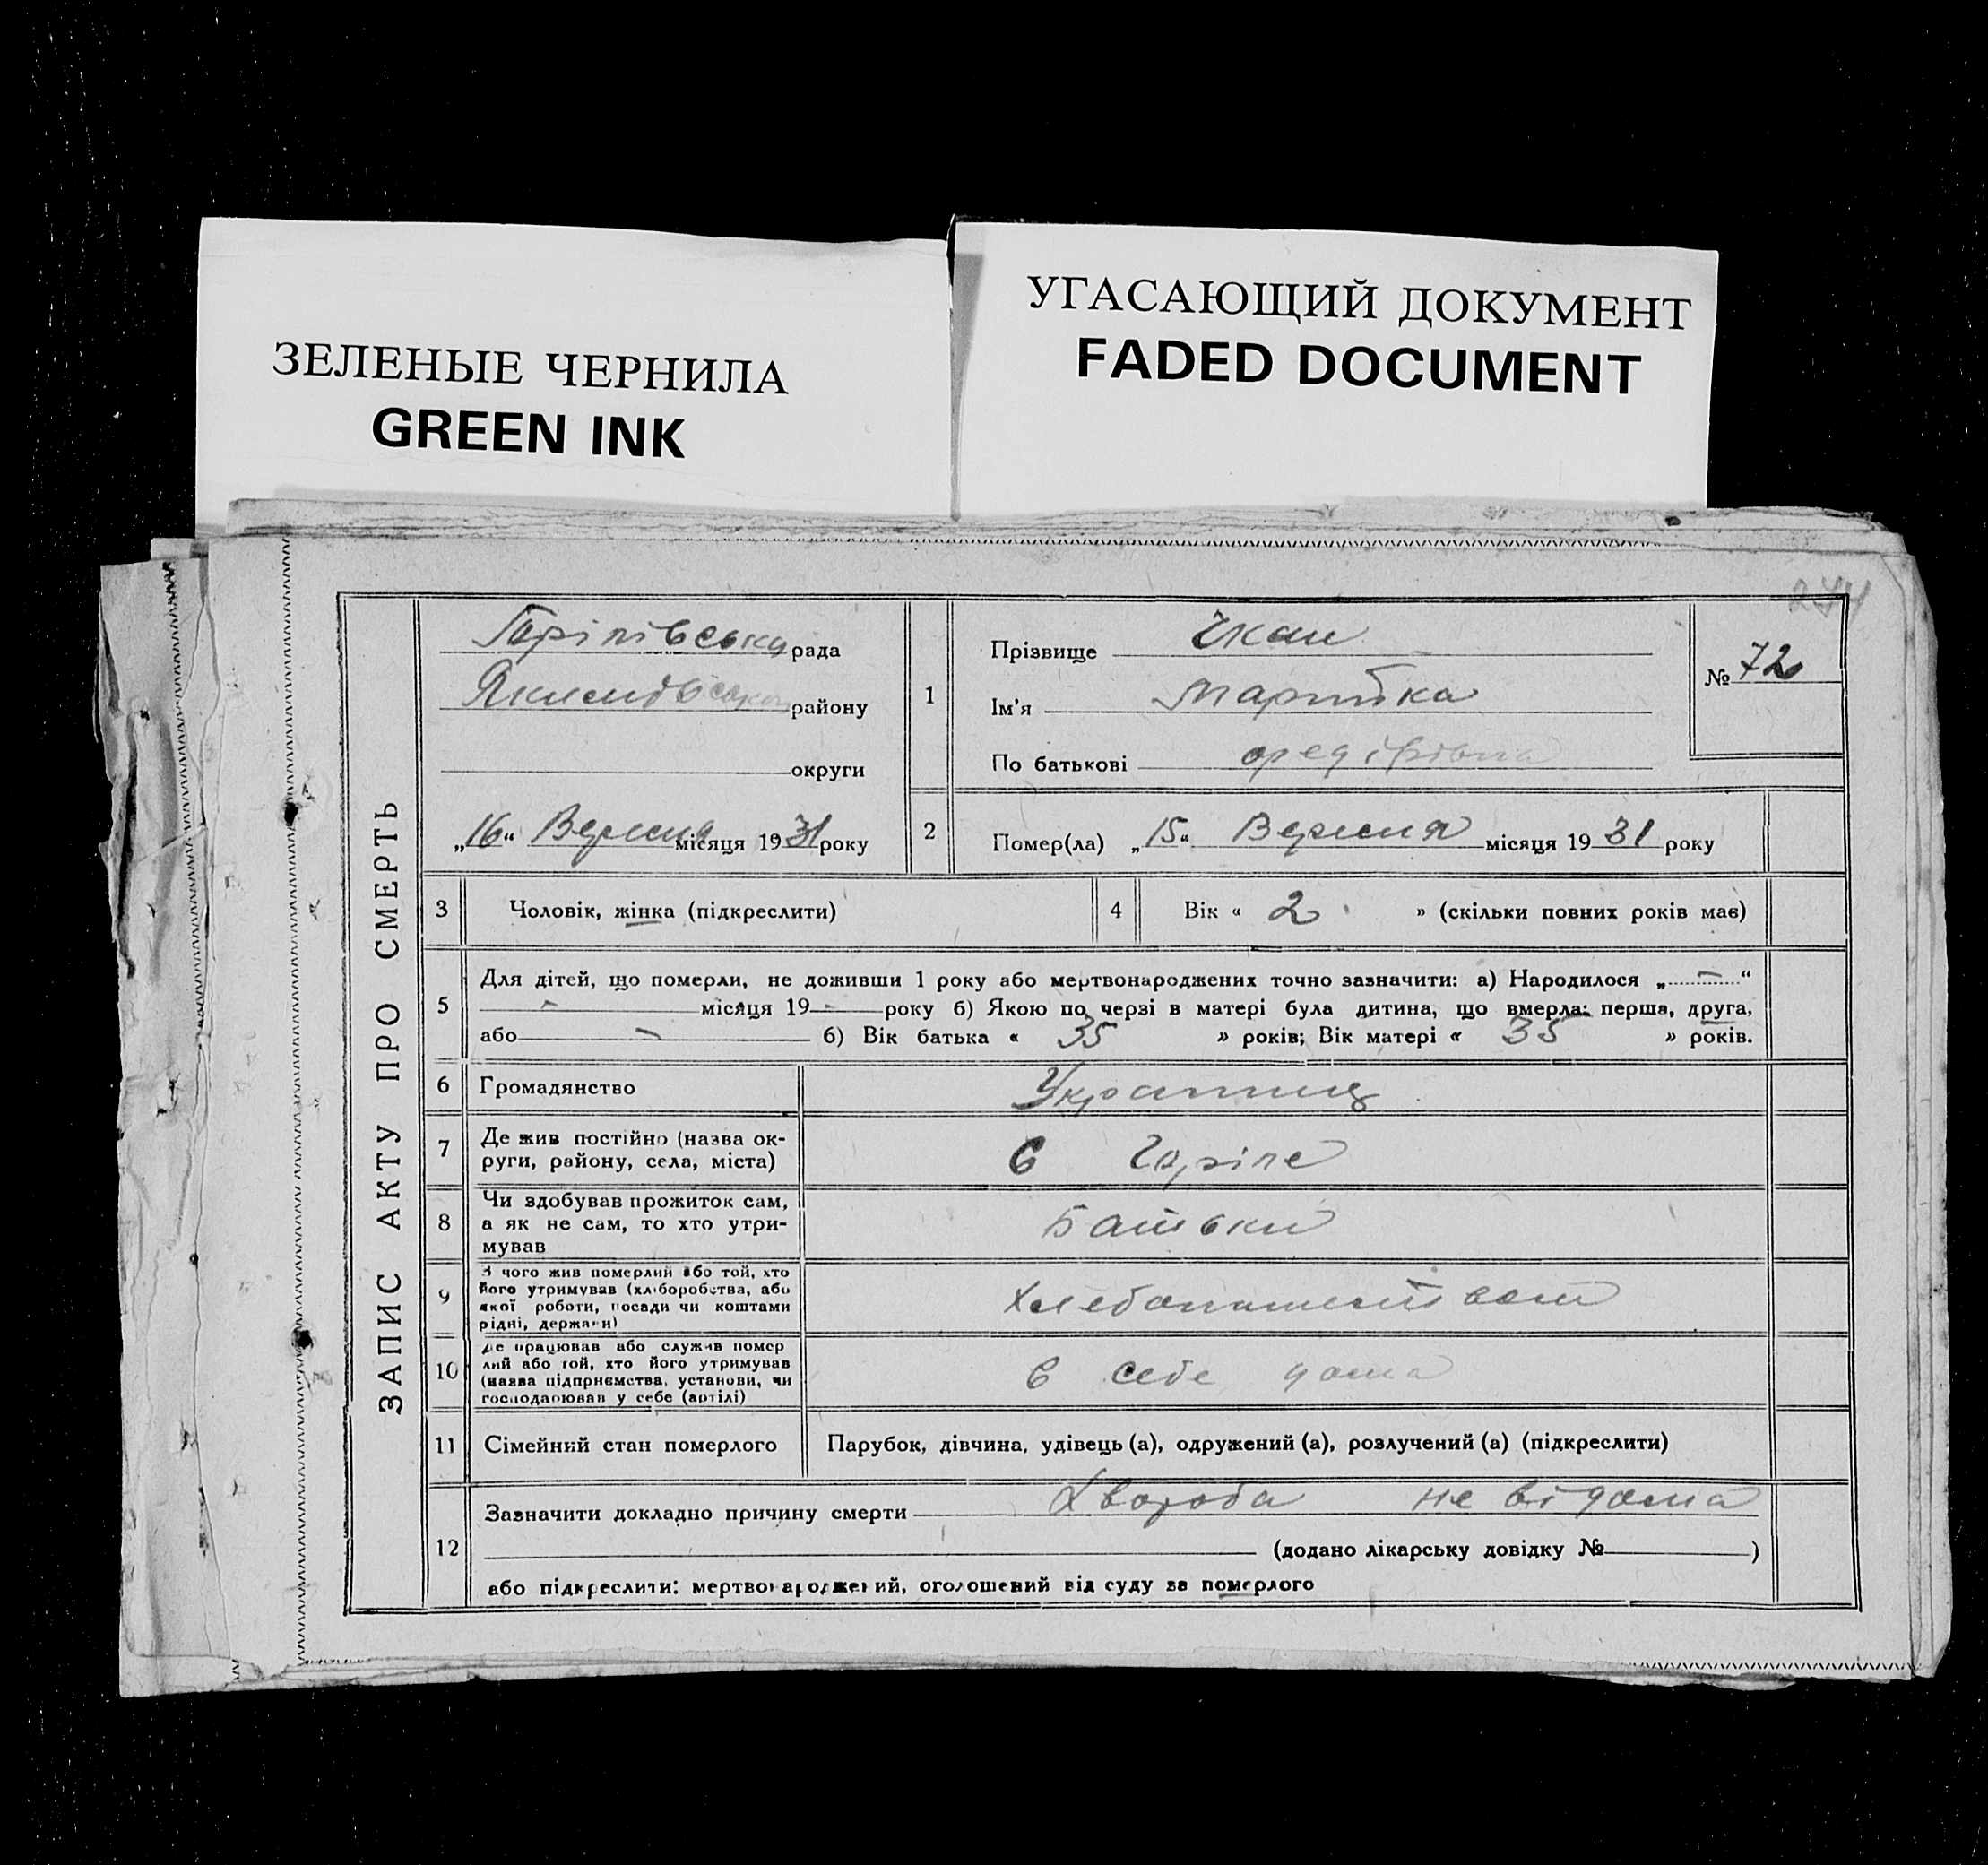 ЗЕЛЕНЫЕ ЧЕРНИЛА
GREEN INK
УГАСАЮЩИЙ ДОКУМЕНТ
FADED DOCUMENT
ЗАПИС АКТУ ПРО СМЕРТЬ
Горіпівська рада
району
округи
„16“ Вересня місяця 1931 року
1
Прізвище Чкан
Ім'я
По батькові
№ 72
2
Помер(ла) „15“ Вересня місяця 1931 року
3
Чоловік, жінка (підкреслити)
4
Вік « 2 » (скільки повних років має)
5
Для дітей, що померли, не доживши 1 року або мертвонароджених точно зазначити: а) Народилося „ — “
— місяця 19 — року б) Якою по черзі в матері була дитина, що вмерла: перша, друга,
або — б) Вік батька « 35 » років; Вік матері « 35 » років.
6
Громадянство
7
Де жив постійно (назва ок-
руги, району, села, міста)
с Горіпе
8
Чи здобував прожиток сам,
а як не сам, то хто утри-
мував
Батьки
9
З чого жив померлий або той, хто
його утримував (хліборобства, або
якої роботи, посади чи коштами
рідні, держави)
10
Де працював або служив помер
лий або той, хто його утримував
(назва підприємства, установи, чи
господарював у себе (артілі)
в себе дома
11
Сімейний стан померлого
Парубок, дівчина, удівець (а), одружений (а), розлучений (а) (підкреслити)
12
Зазначити докладно причину смерти Хвороба не відома
(додано лікарську довідку № )
або підкреслити: мертвонароджений, оголошений від суду за померлого